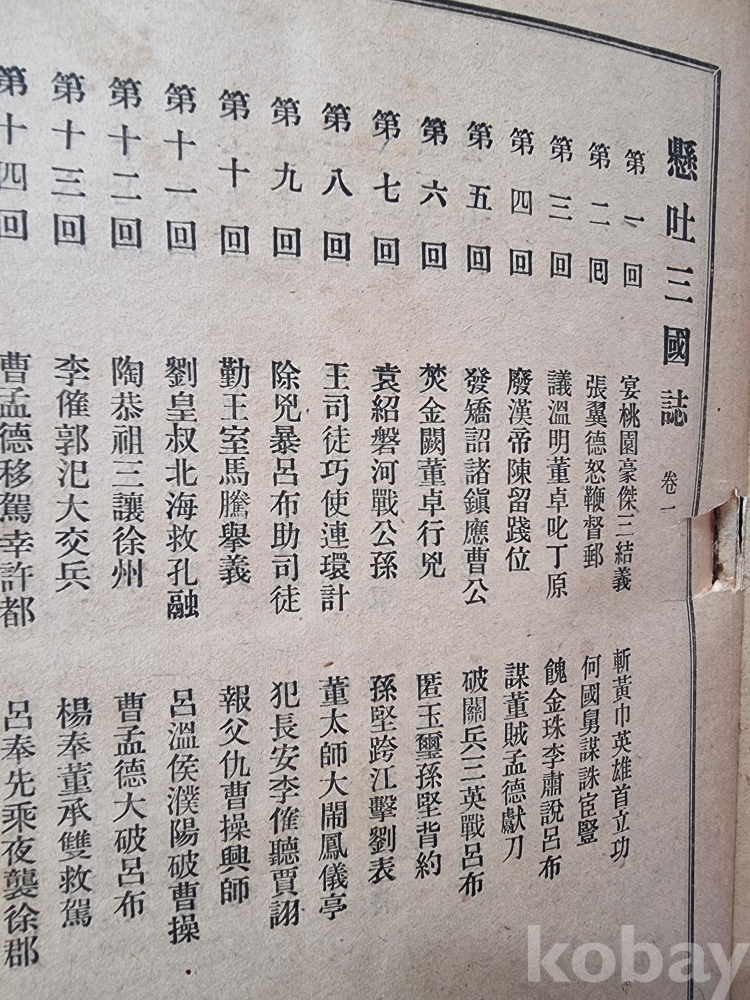 懸吐三國誌 卷一
第一回 宴桃園豪傑三結義 斬黃巾英雄首立功
第二回 張翼德怒鞭督郵 何國舅謀誅宦豎
第三回 議溫明董卓叱丁原 餽金珠李肅說呂布
第四回 廢漢帝陳留踐位 謀董賊孟德獻刀
第五回 發矯詔諸鎭應曹公 破關兵三英戰呂布
第六回 焚金闕董卓行兇 匿玉璽孫堅背約
第七回 袁紹磐河戰公孫 孫堅跨江擊劉表
第八回 王司徒巧使連環計 董太師大鬧鳳儀亭
第九回 除兇暴呂布助司徒 犯長安李傕聽賈詡
第十回 勤王室馬騰擧義 報父仇曹操興師
第十一回 劉皇叔北海救孔融 呂溫侯濮陽破曹操
第十二回 陶恭祖三讓徐州 曹孟德大破呂布
第十三回 李傕郭汜大交兵 楊奉董承雙救駕
第十四回 曹孟德移駕幸許都 呂奉先乘夜襲徐郡
kobay